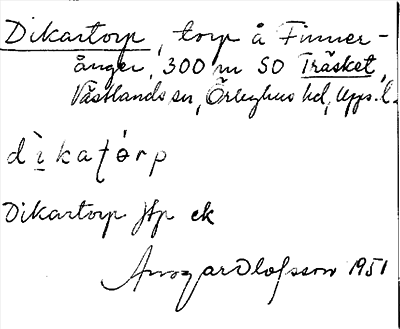 Dikartorp, torp å Finner-
ånger, 300 m SO Träsket,
Västlands sn, Örbyhus hd, Upps. l.
dìkaƫórp
Dikartorp jfp ek
Ansgar Olofsson 1951